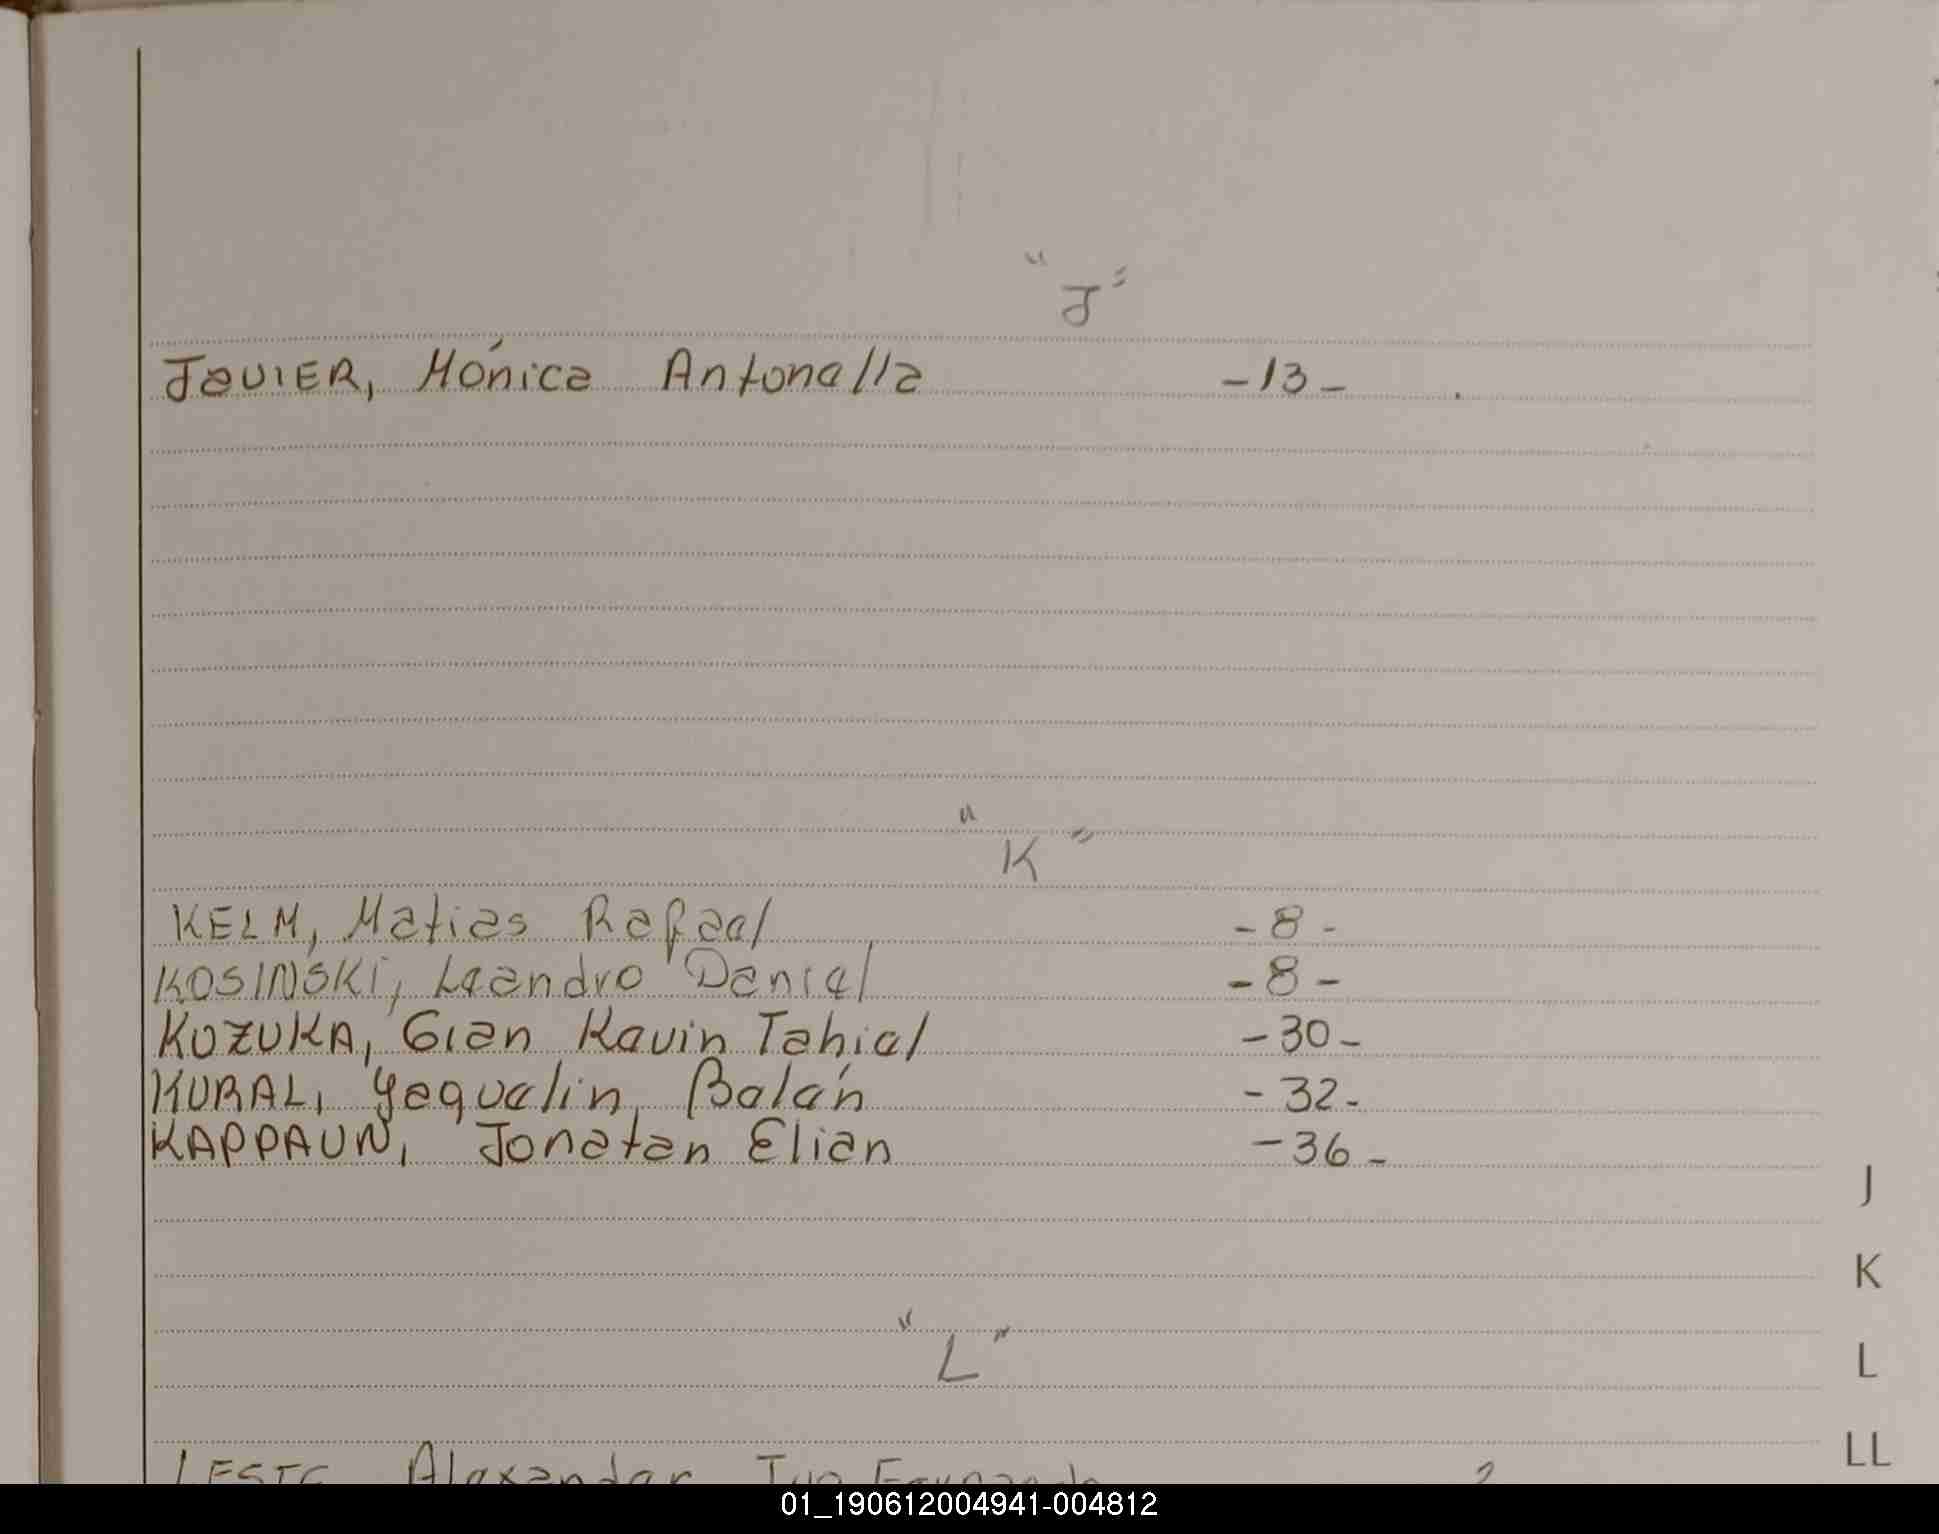 "J"
JAVIER, Mónica Antonella -13-
"K"
KELM, Matias Rafael -8-
KOSINSKI, Leandro Daniel -8-
KUZUKA, Gian Kevin Tahiel -30-
KURAL, Yaquelin, Belén -32-
KAPPAUN, Jonatan Elian -36-
J
K
"L"
L
LL
Alexander
01_190612004941-004812